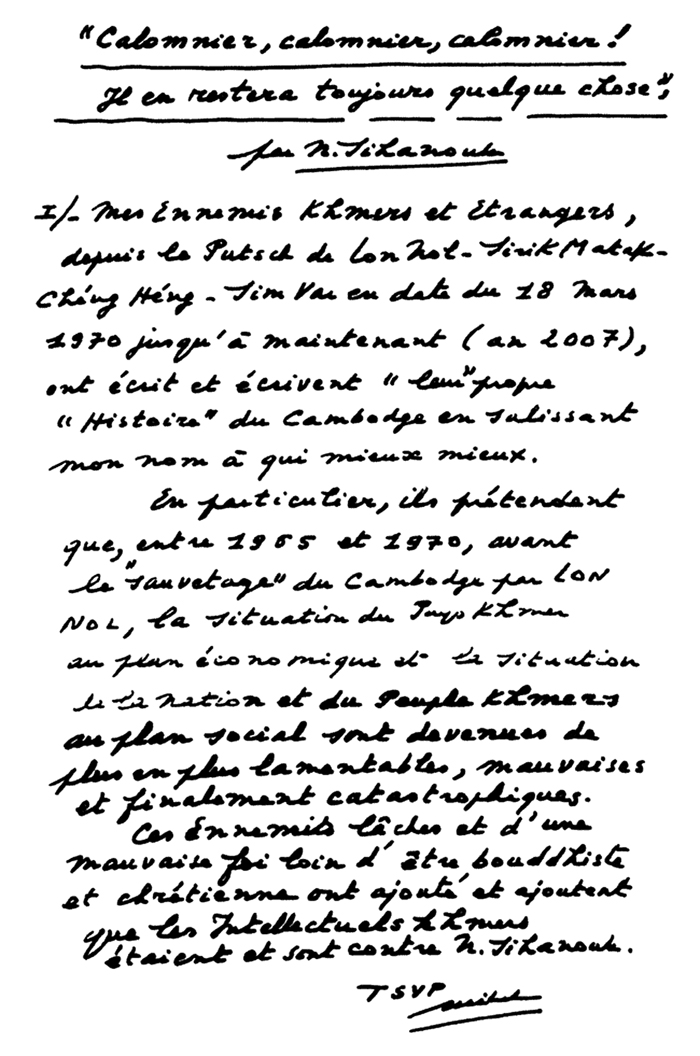 "Calomnier, calomnier, calomnier!
Il en restera toujours quelque chose",
par N. Sihanouk
I/- Mes Ennemis Khmers et Etrangers,
depuis le Putsch de Lon Nol - Sirik Matak -
Chéng Héng - Sim Var en date du 18 Mars
1970 jusqu'à maintenant (an 2007),
ont écrit et écrivent "leur" propre
"Histoire" du Cambodge en salissant
mon nom à qui mieux mieux.
En particulier, ils prétendent
que, entre 1965 et 1970, avant
le "sauvetage" du Cambodge par LON
NOL, la situation du Pays Khmer
au plan économique et la situation
de la Nation et du Peuple Khmers
au plan social sont devenues de
plus en plus lamentables, mauvaises
et finalement catastrophiques.
Ces Ennemis lâches et d'une
mauvaise foi loin d'être bouddhiste
et chrétienne ont ajouté et ajoutent
que les Intellectuels Khmers
étaient et sont contre N. Sihanouk.
TSVP